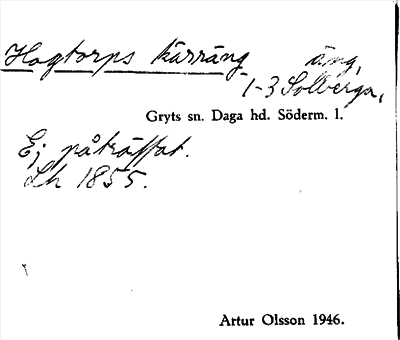 Hagtorps kärräng äng,
1-3 Solberga,
Gryts sn. Daga hd. Söderm. l.
Ej påträffat.
Lh 1855.
Artur Olsson 1946.